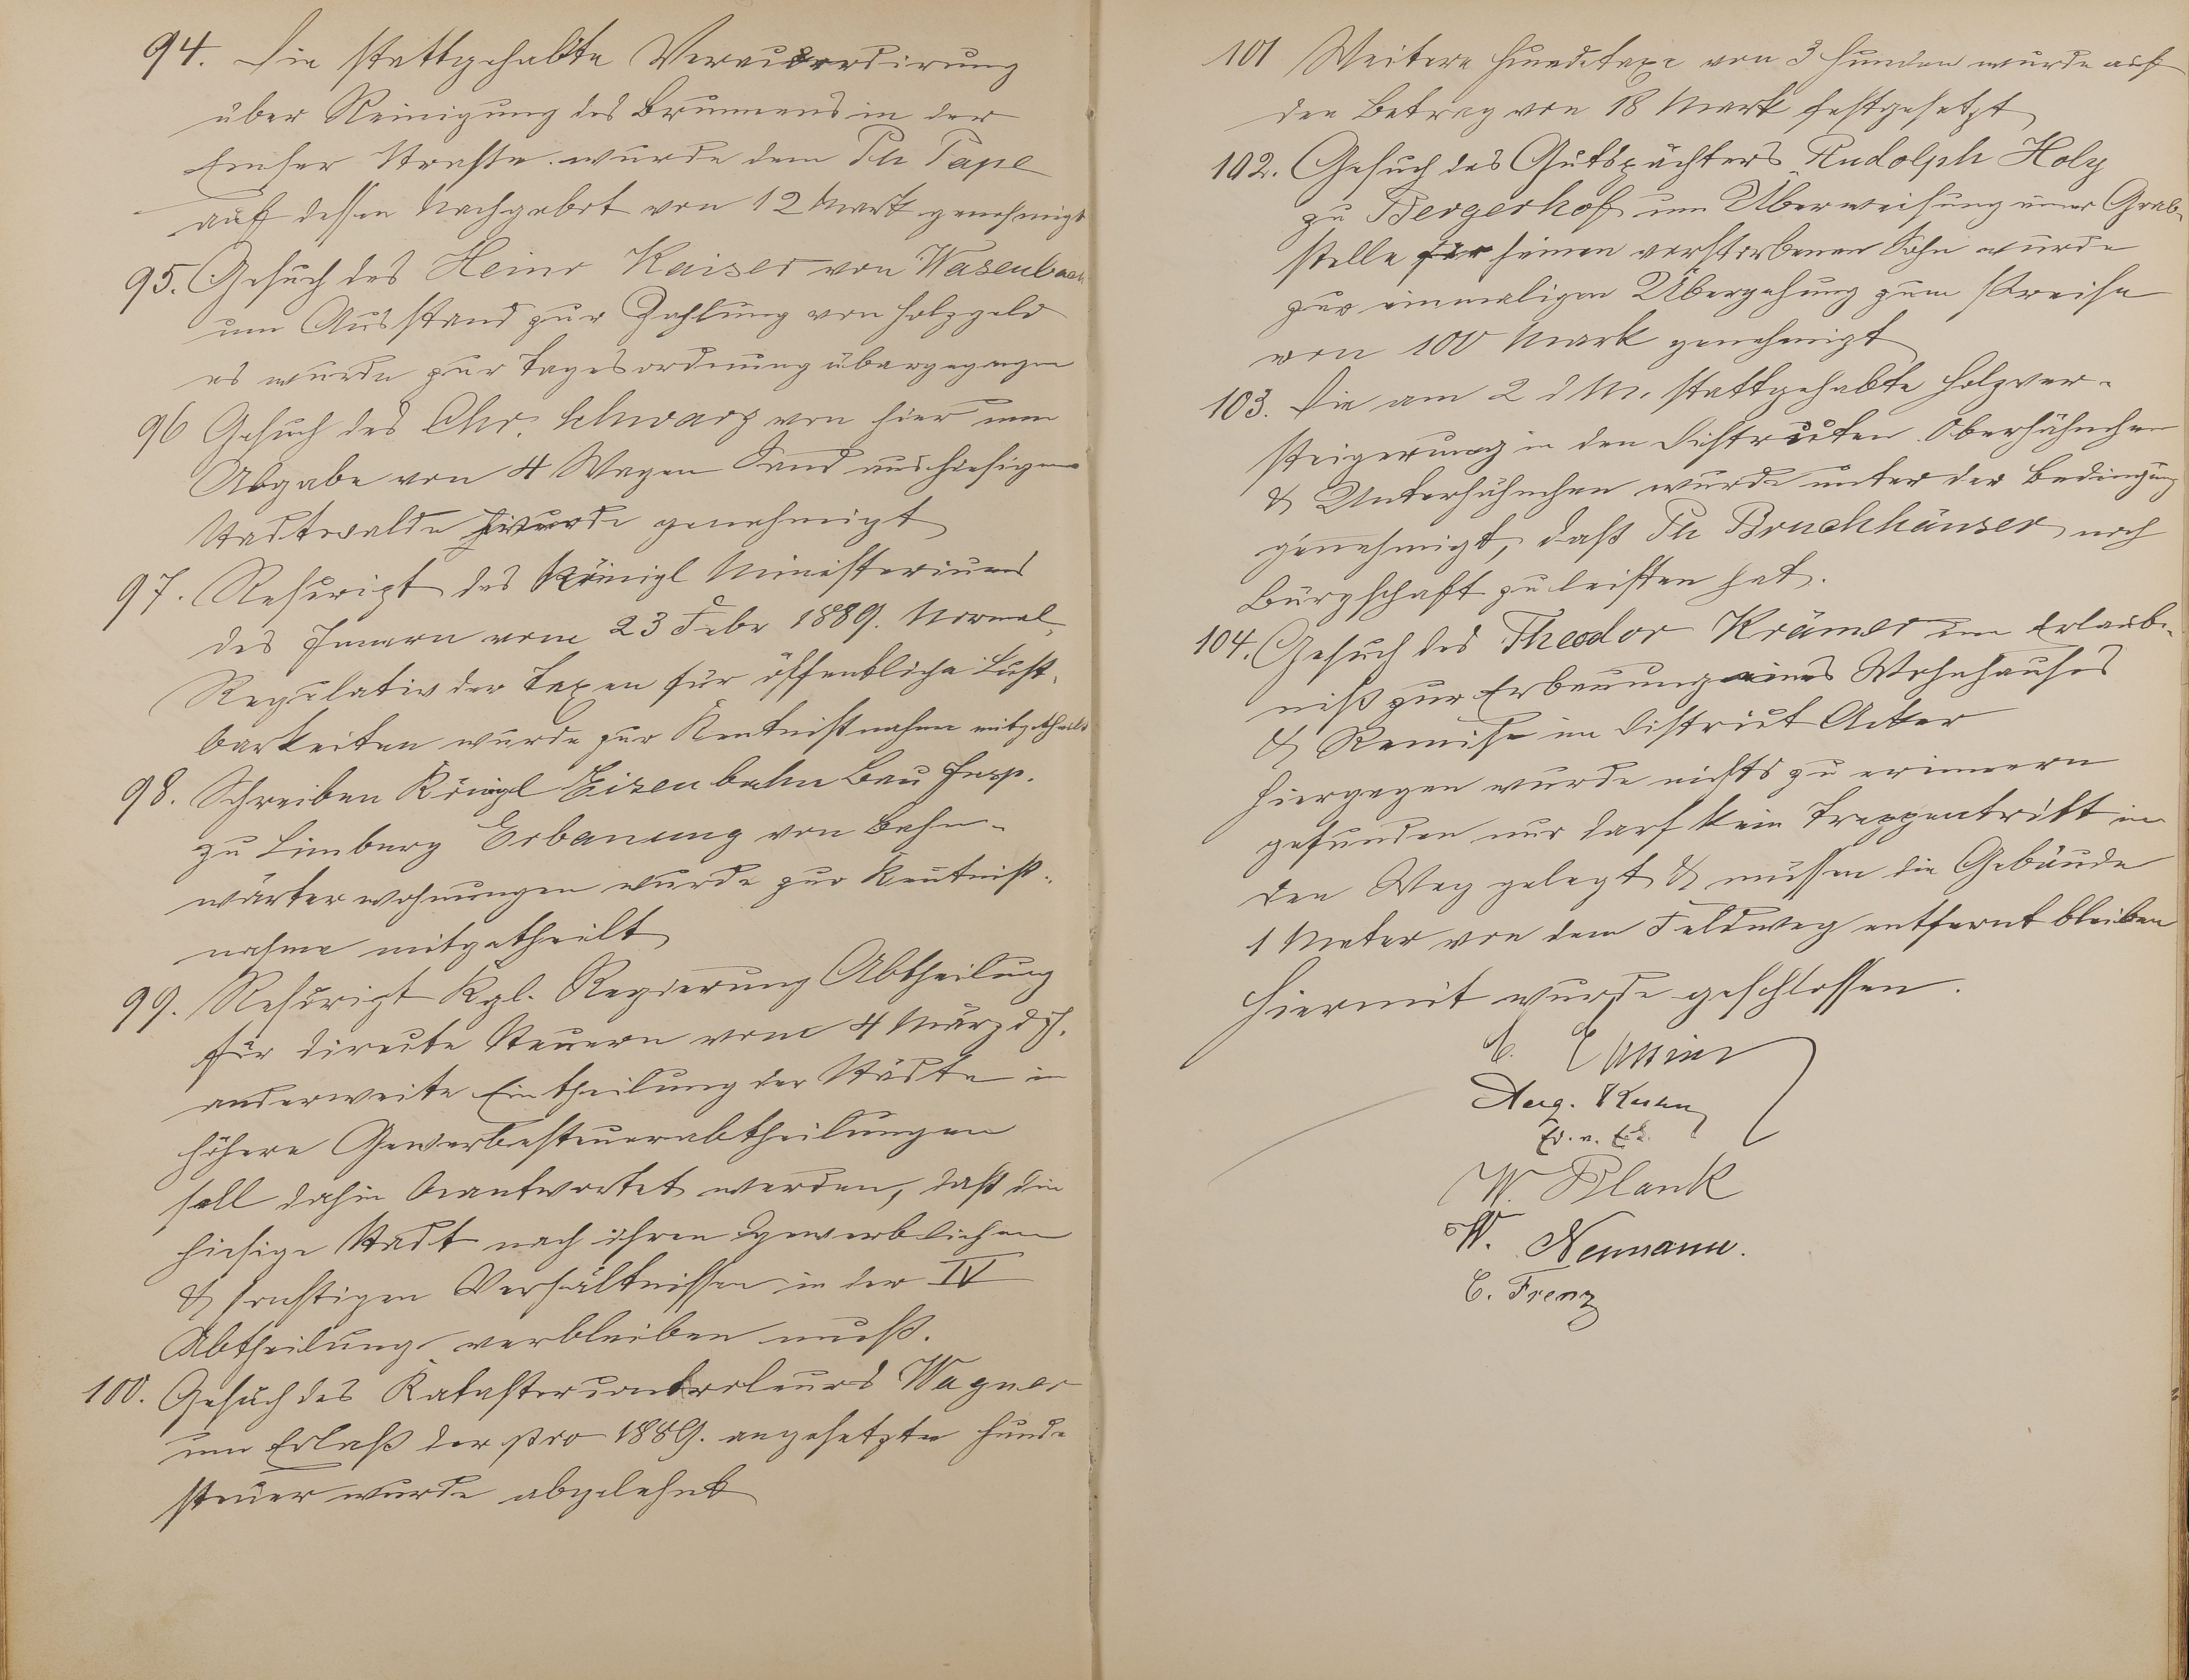 94. Die stattgehabte Veraccordirung
über Reinigung des Brunnens in der
Emser Straße wurde dem Ph Pape
auf dessen Nachgebot von 12 Mark genehmigt
95. Gesuch des Heinr Kaiser von Wasenbach
um Ausstand zur Zahlung von Holzgeld
es wurde zur Tagesordnung übergegangen
96 Gesuch des Chr. Schwarz von hier um
Abgabe von 4 Wagen Sand aus hiesigem
Stadtwalde wurde genehmigt
97. Rescript des Königl Ministeriums
des Innern vom 23 Febr 1889. Normal-
Regulativ der Taxen für öffentliche Lust-
barkeiten wurde zur Kentnißnahme mitgetheilt
98. Schreiben Königl Eisenbahn Bau Insp.
zu Limburg Erbauung von Bahn-
wärterwohnungen wurde zur Kentniß-
nahme mitgetheilt
99. Rescript Kgl. Regierung Abtheilung
für directe Steuern vom 4 März ds J.
anderweite Eintheilung der Städte in
höhere Gewerbesteuerabtheilungen
soll dahin beantwortet werden, daß die
hiesige Stadt nach ihren gewerblichen
& sonstigen Verhältnissen in der IV
Abtheilung verbleiben muß.
100. Gesuch des Katastercontroleurs Wagner
um Erlaß der pro 1889. angesetzten Hunde
steuer wurde abgelehnt
101 Weitere Hundetaxe von 3 Hunden wurde auf
den Betrag von 18 Mark festgesetzt
102. Gesuch des Gutspächters Rudolph Holy
zu Bergerhof um Überweisung einer Grab-
stelle für seinen verstorbenen Sohn wurde
zur einmaligen Übergehung zum Preise
von 100 Mark genehmigt
103. Die am 2 d M. stattgehabte Holzver-
steigerung in den Districten Oberhähnchen
& Unterhähnchen wurde unter der Bedingung
genehmigt, daß Ph Bruchhäuser noch
Bürgschaft zu leisten hat.
104. Gesuch des Theodor Krämer um Erlaub-
niß zur Erbauung eines Wohnhauses
& Remise im District Acker
Hiergegen wurde nichts zu erinnern
gefunden nur darf kein Treppentritt in
den Weg gelegt & müssen die Gebäude
1 Meter von dem Feldweg entfernt bleiben
Hiermit wurde geschlossen.
Aug.
W. Blank
W. Neumann.
C. Frenz